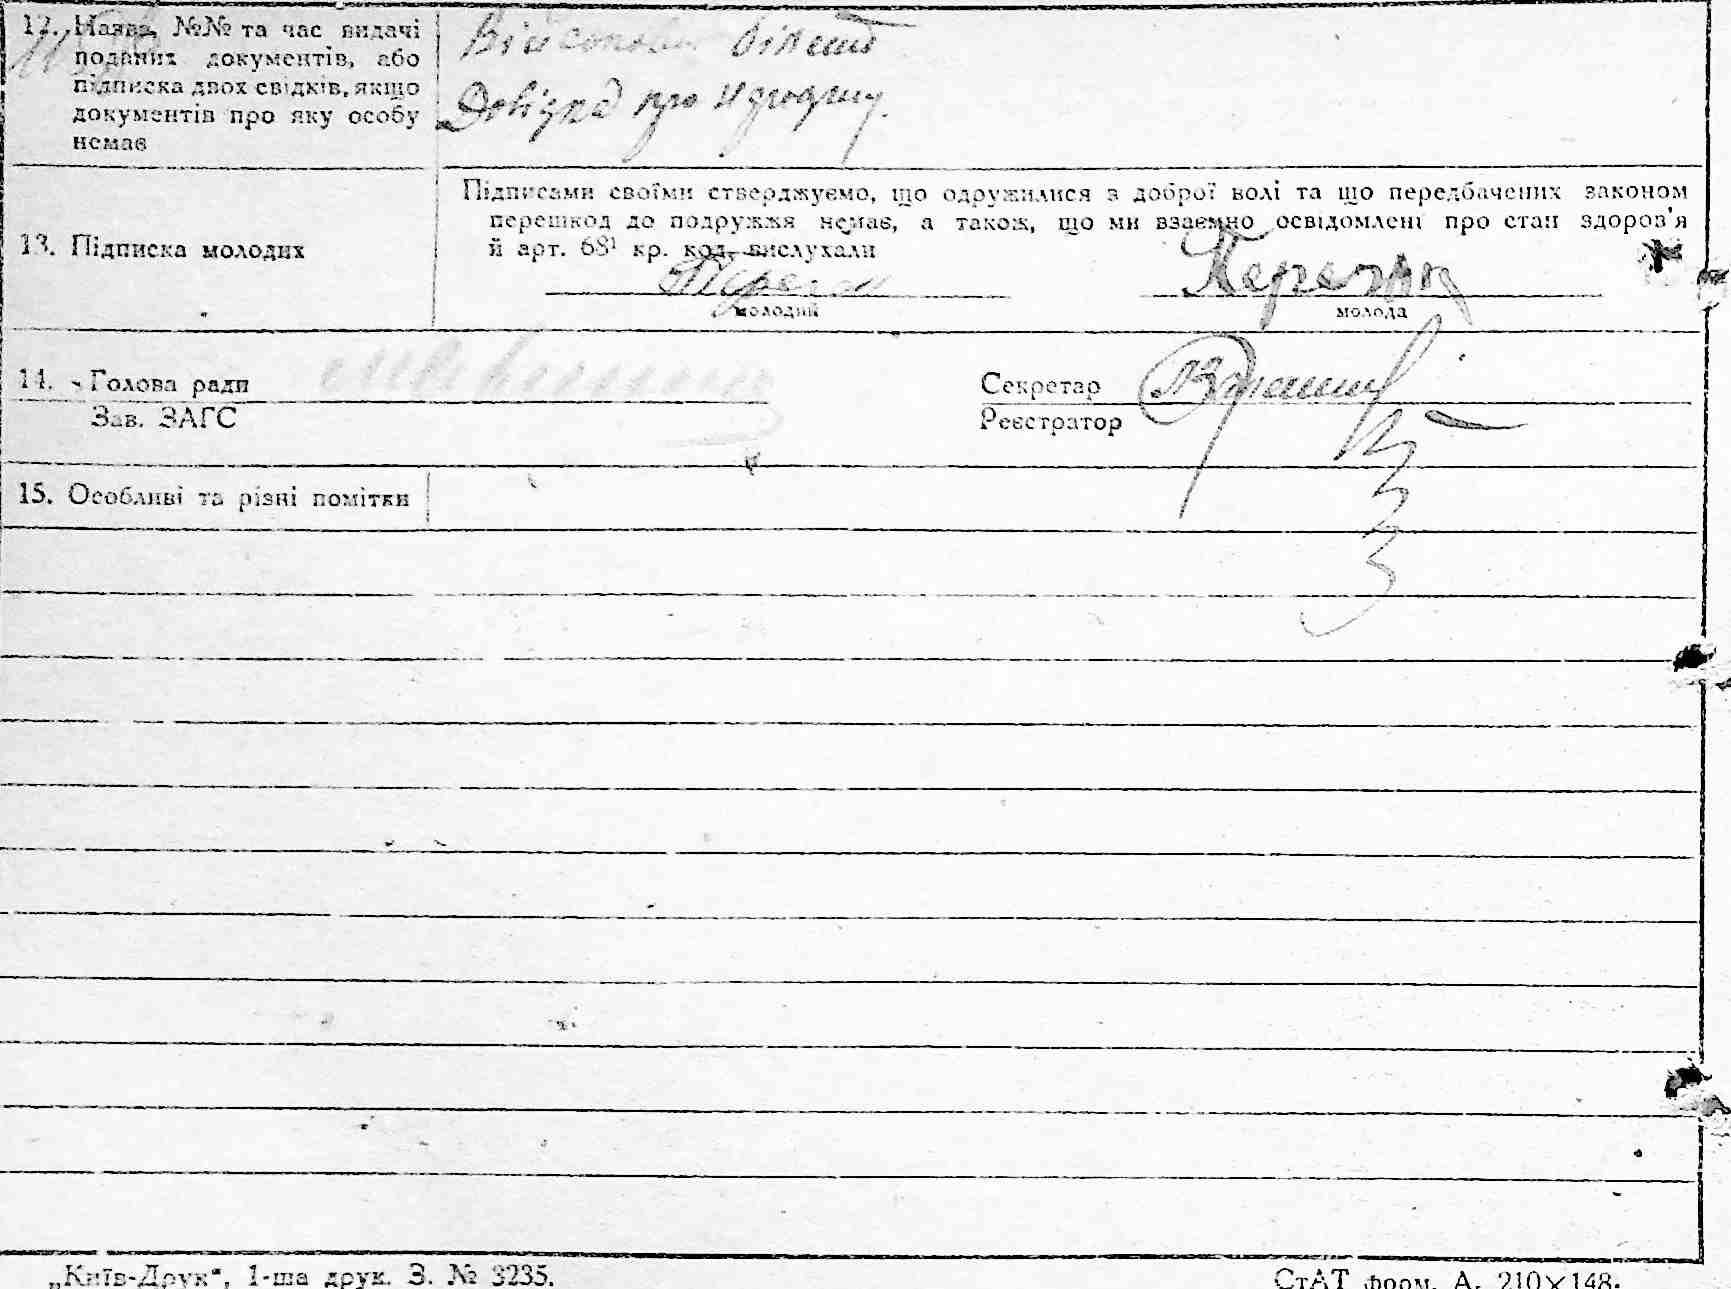 12. Назва, №№ та час видачі
поданих документів, або
підписка двох свідків, якщо
документів про яку особу
немає
Військовий білет
Довізка про
13. Підписка молодих
Підписами своїми стверджуємо, що одружилися з доброї волі та що передбачених законом
перешкод до подружжя немає, а також, що ми взаємно освідомлені про стан здоров'я
й арт. 68¹ кр. код. вислухали
молодий
молода
14. Голова ради
Зав. ЗАГС
Секретар
Реєстратор
15. Особливі та різні помітки
„Київ-Друк“, 1-ша друк. З. № 3235.
СтАТ форм. А. 210×148.